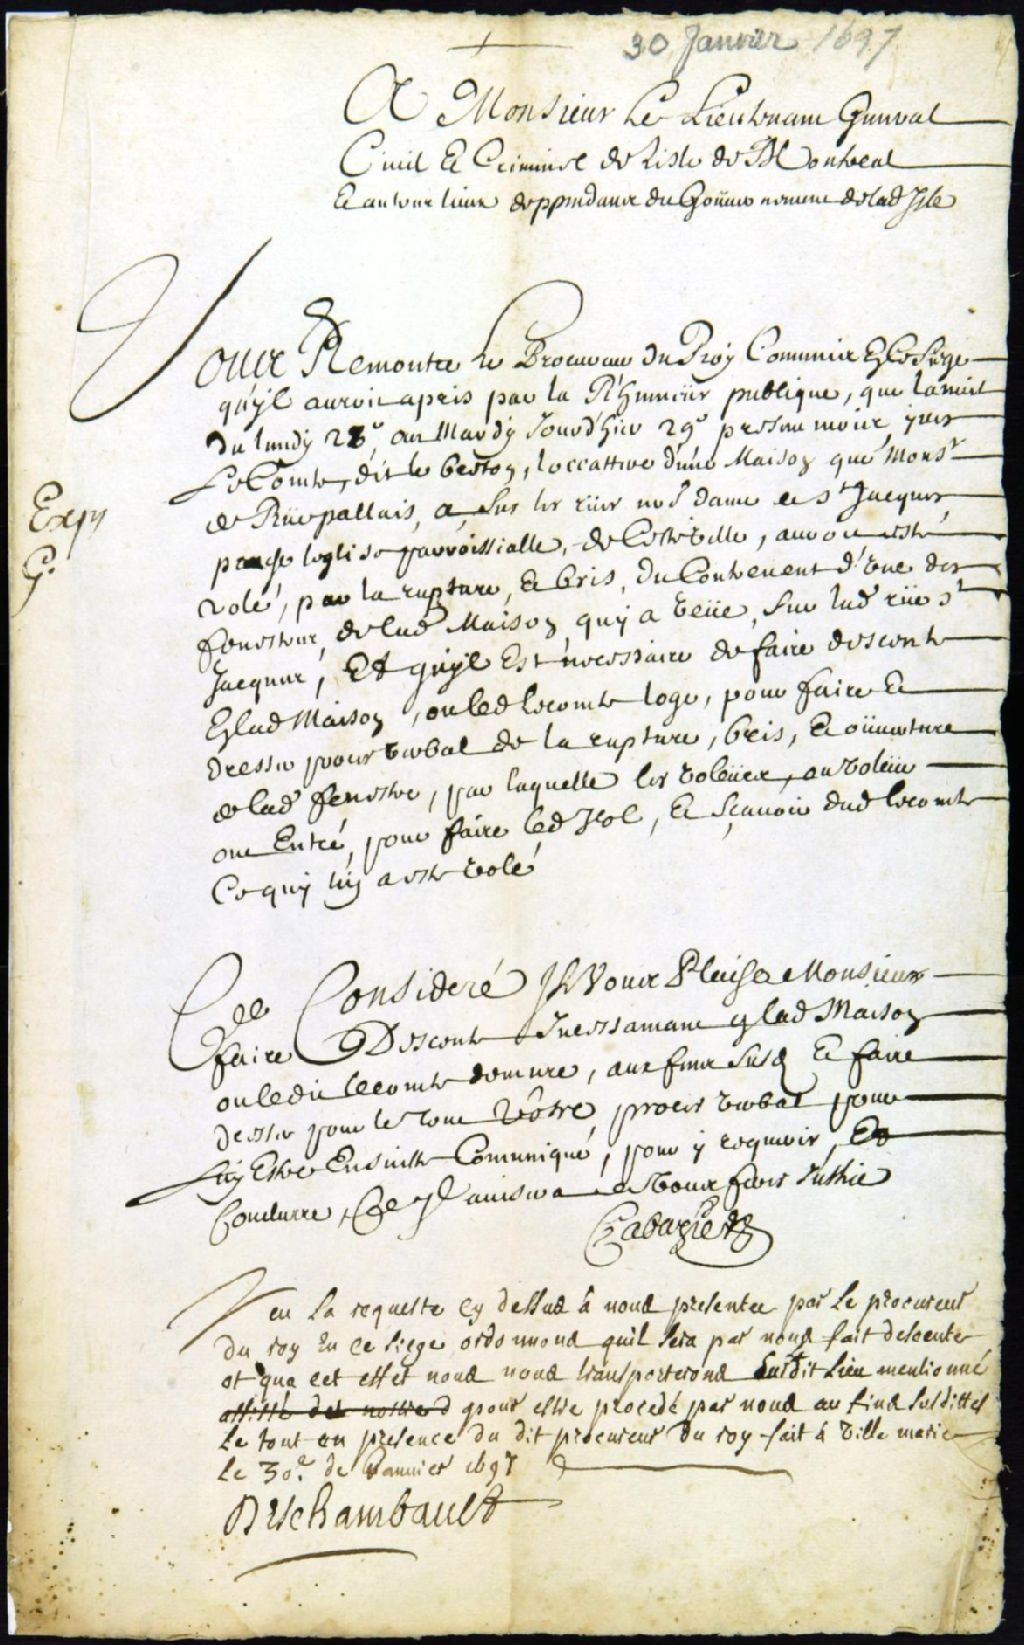 30 Janvier 1697
A Monsieur Le Lieutenant General
Civil Et Criminel de Lisle de Montreal
Et autres lieux deppendance du Gouvernement de lad Isle
Vous Remontre Le Procureur Du Roy Commis En Ce Siege
qu'yl auroit apris par la Rhumeur publique, que la nuit
du lundy 28e au Mardy Jourd'hier 29e present mois, yves
Le Comte, dit le breton, loccattere d'une Maison que Monsr
de Ruepallais, a, sur les rües no dame et st Jacques
proche leglise parroissialle, de Cette Ville, auroit esté
volé, par la rupture, & bris, du Contrevent d'une des
fenestres, de lad Maison, quy a veüe, sur lad rüe st
Jacques, Et qu'yl Est necessaire de faire descente
En lad Maison, ou led lecomte loge, pour faire Et
dresser proces verbal de la rupture, bris, Et ouverture
de lad fenestre, par laquelle les voleurs, ou voleur
ont Entré, pour faire led Vol, Et sçavoir dud lecomte
Ce quy luy a esté volé
Expn
G.
Ce Consideré Il Vous Plaise Monsieur
faire Descente Incessament En lad Maison
ou ledit lecomte demeure, aux fins susd Et faire
dresser pour le tout Vôtre proces verbal pour
Luy Estre Ensuitte Communiqué, pour y requerir, Et
Conclurre, Ce Il avisera Et Vous ferez Justice
Cabazié
Veu La requeste Cy dessus à nous presentee par Le procureur
du roy En ce siege ordonnons quil sera par nous fait descente
et qua cet effet nous nous transporterons Susdit Lieu mentionné
assisté de nostre g pour estre procedé par nous au fins susdittes
Le tout en presence du dit procureur du roy fait à Ville marie
Le 30e de Janvier 1697
Deschambault